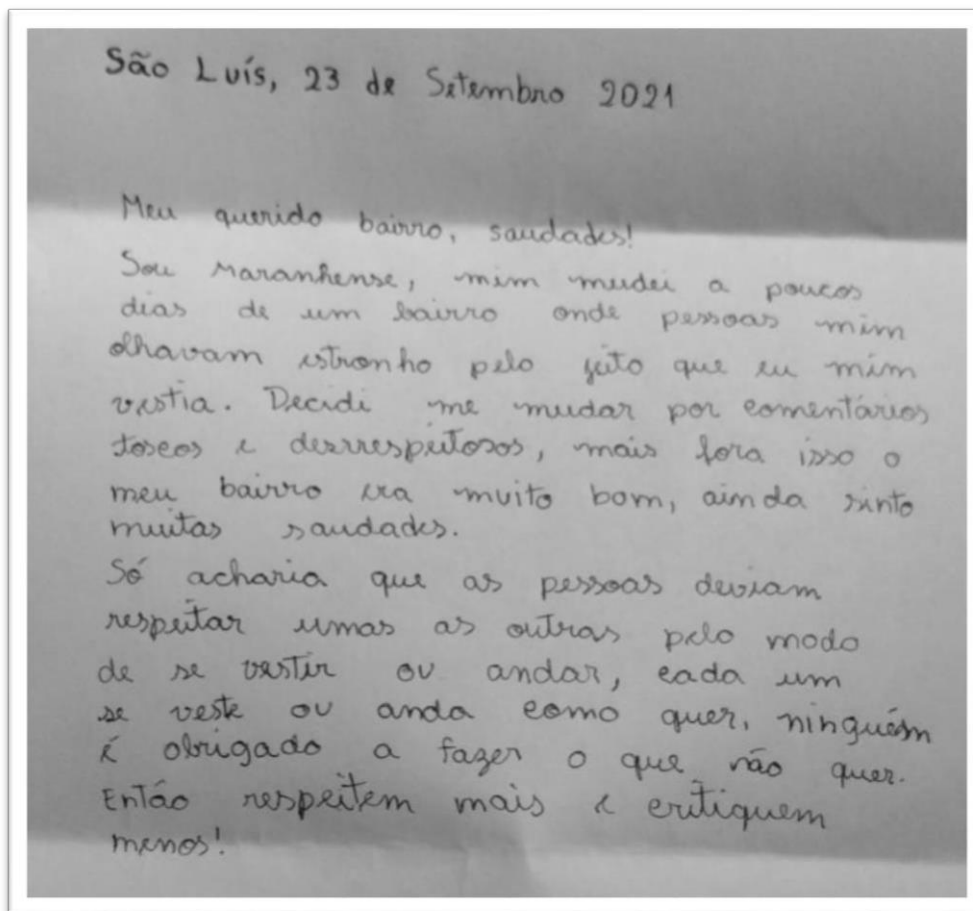 São Luís, 23 de Setembro 2021
Meu querido bairro, saudades!
Sou Maranhense, mim mudei a poucos
dias de um bairro onde pessoas mim
olhavam estronho pelo jeito que eu mim
vestia. Decidi me mudar por comentários
toscos e desrrespeitosos, mais fora isso o
meu bairro era muito bom, ainda sinto
muitas saudades.
Só acharia que as pessoas deviam
respeitar umas as outras pelo modo
de se vestir ou andar, cada um
se veste ou anda como quer, ninguém
é obrigado a fazer o que não quer.
Então respeitem mais e critiquem
menos!